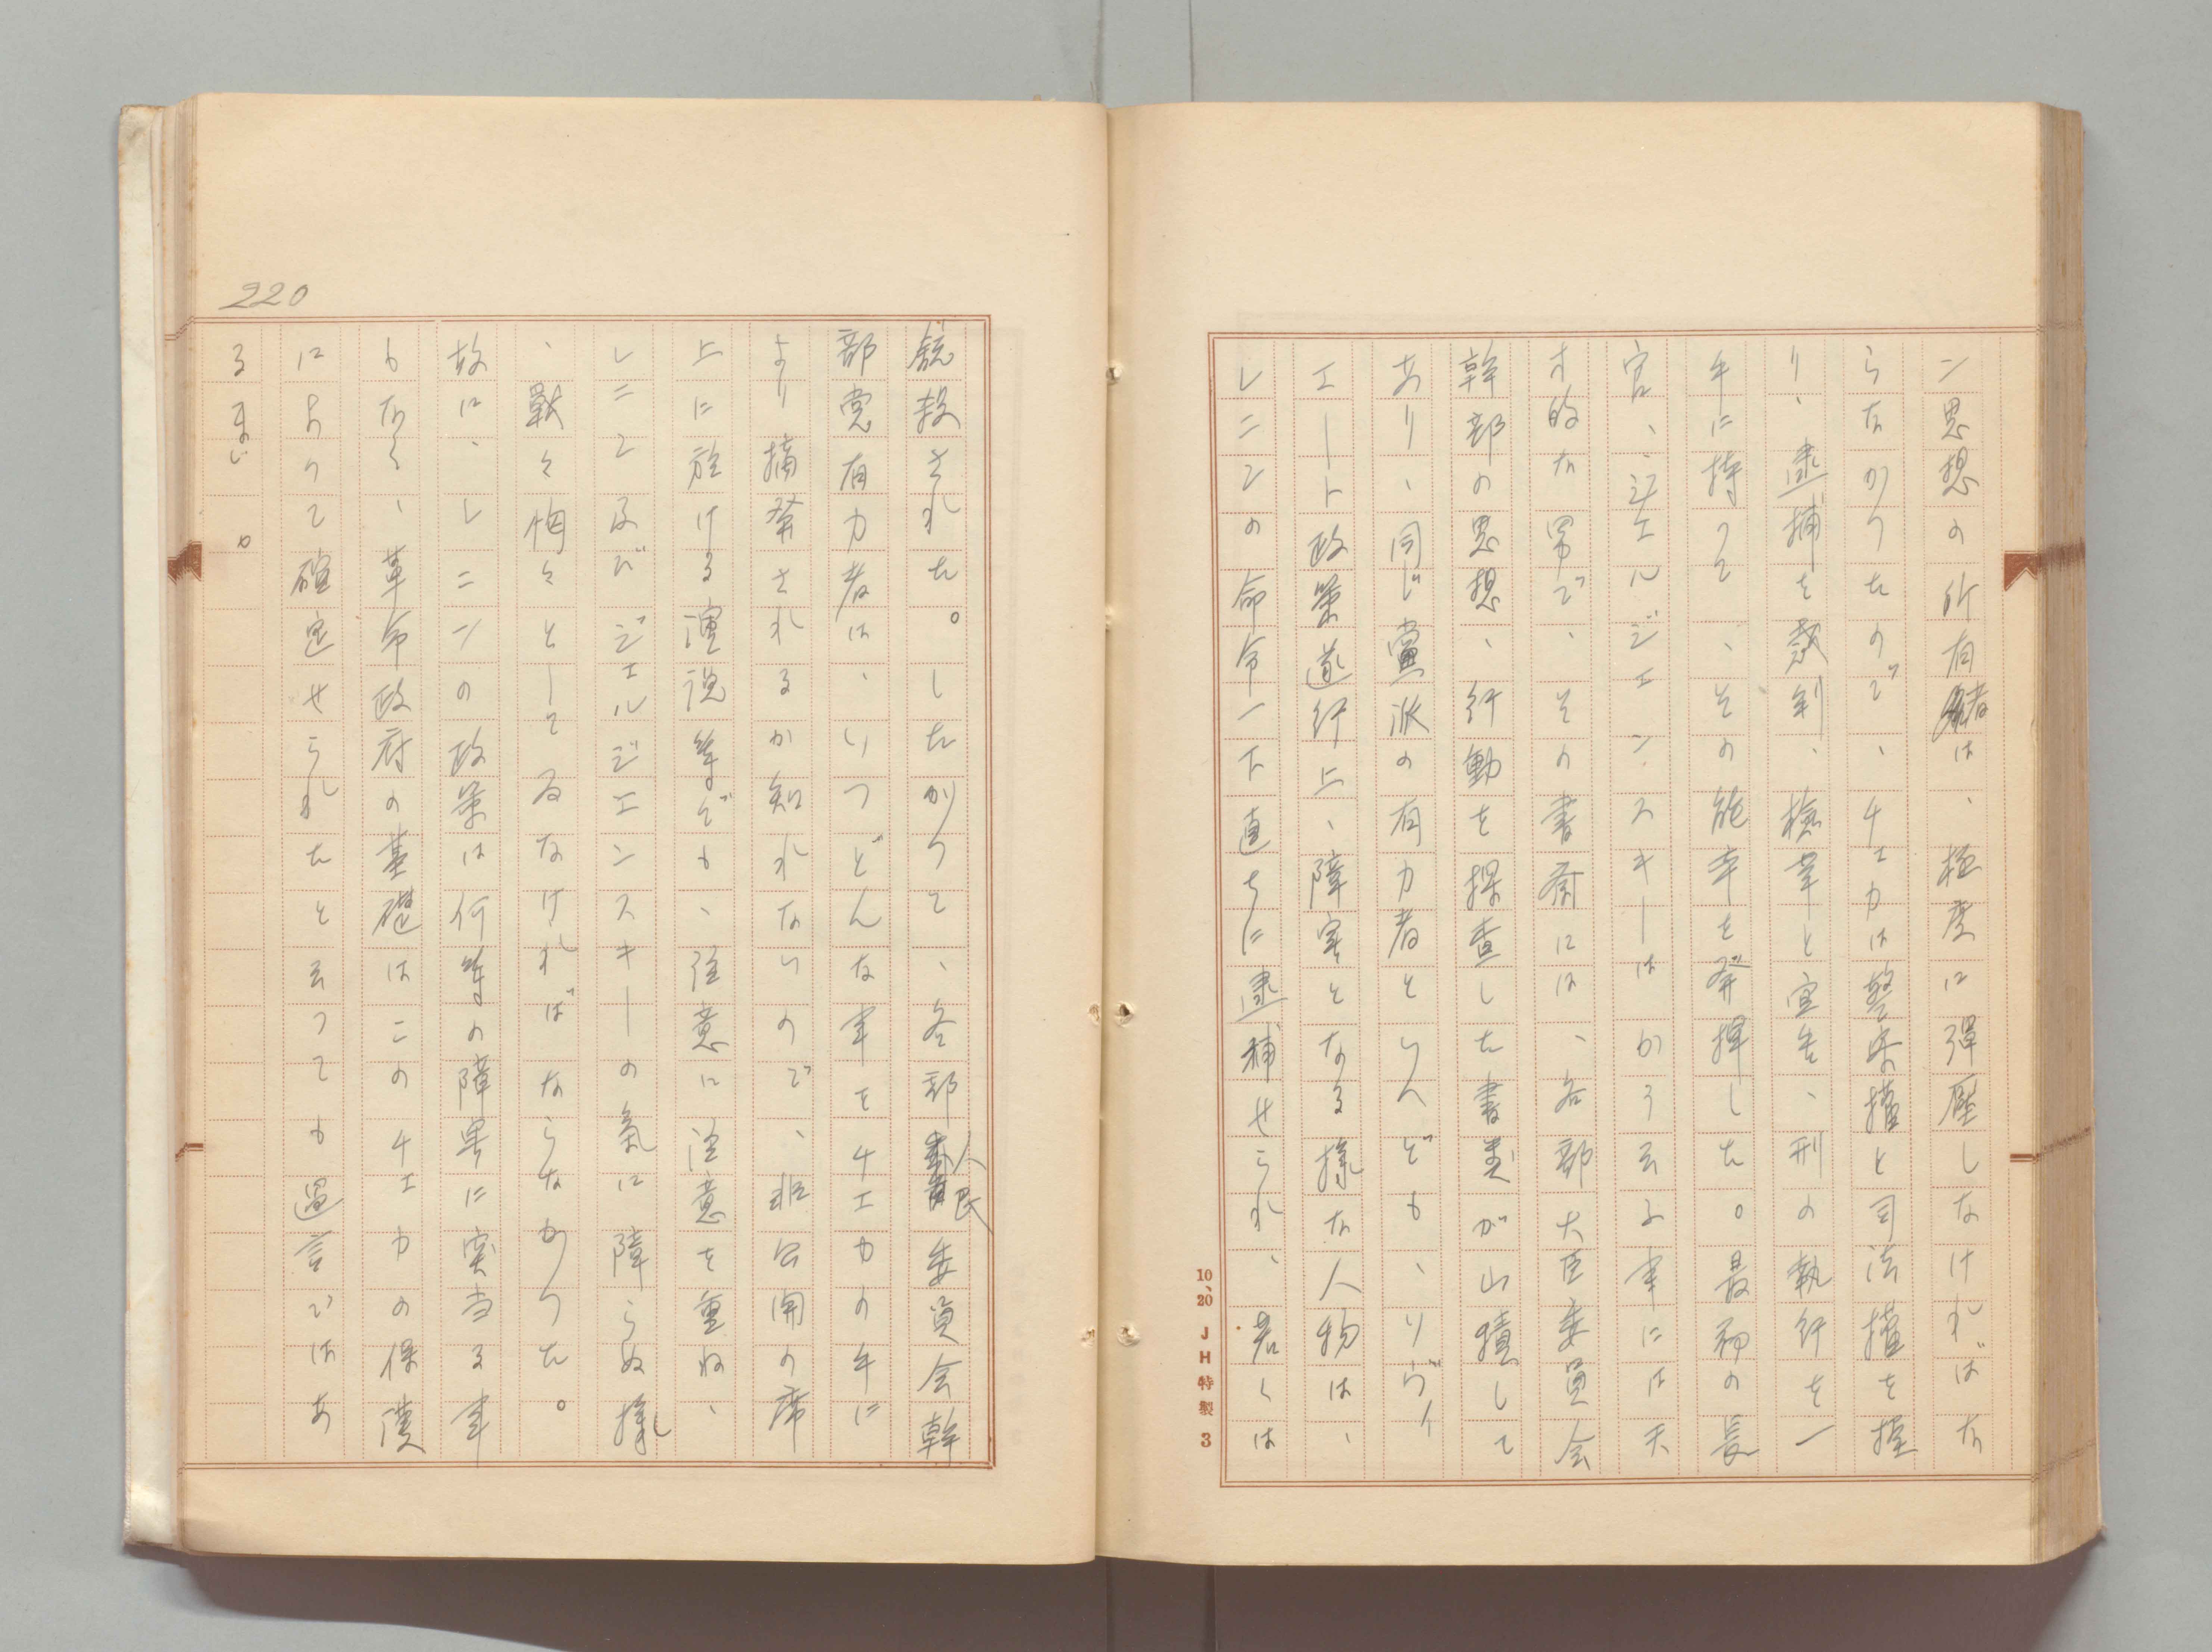 ン思想の所有者は、極度に彈壓しなければな
らなかつたので、チエカは警察權と司法權を握
り、逮捕を裁判、檢挙と宣告、刑の執行を一
手に持つて、その能率を發揮した。最初の長
官、ジエルジエンスキーはかう云ふ事には天
才的な男で、その書斎には、各部大臣委員会
幹部の思想、行動を探査した書类が山積して
あり、同じ黨派の有力者といへども、ソヴイ
エート政策遂行上、障害となる様な人物は、
レニンの命令一下直ちに逮捕せられ、若くは
10、20 JH特製 3
220
銃殺された。したがつて、各部人民委員会幹
部党有力者は、いつどんな事をチエカの手に
より摘発されるか知れないので、非公開の席
上に於ける演説等ぞも、注意に注意を重ね、
レニン及びジエルジエンスキーの氣に障らぬ様
、戰々恟々としてゐなければならなかつた。
故に、レニンの政策は何等の障害に突当る事
もなく、革命政府の基礎はこのチエカの保護
によつて確定せられたと云つても過言ではあ
るまい。